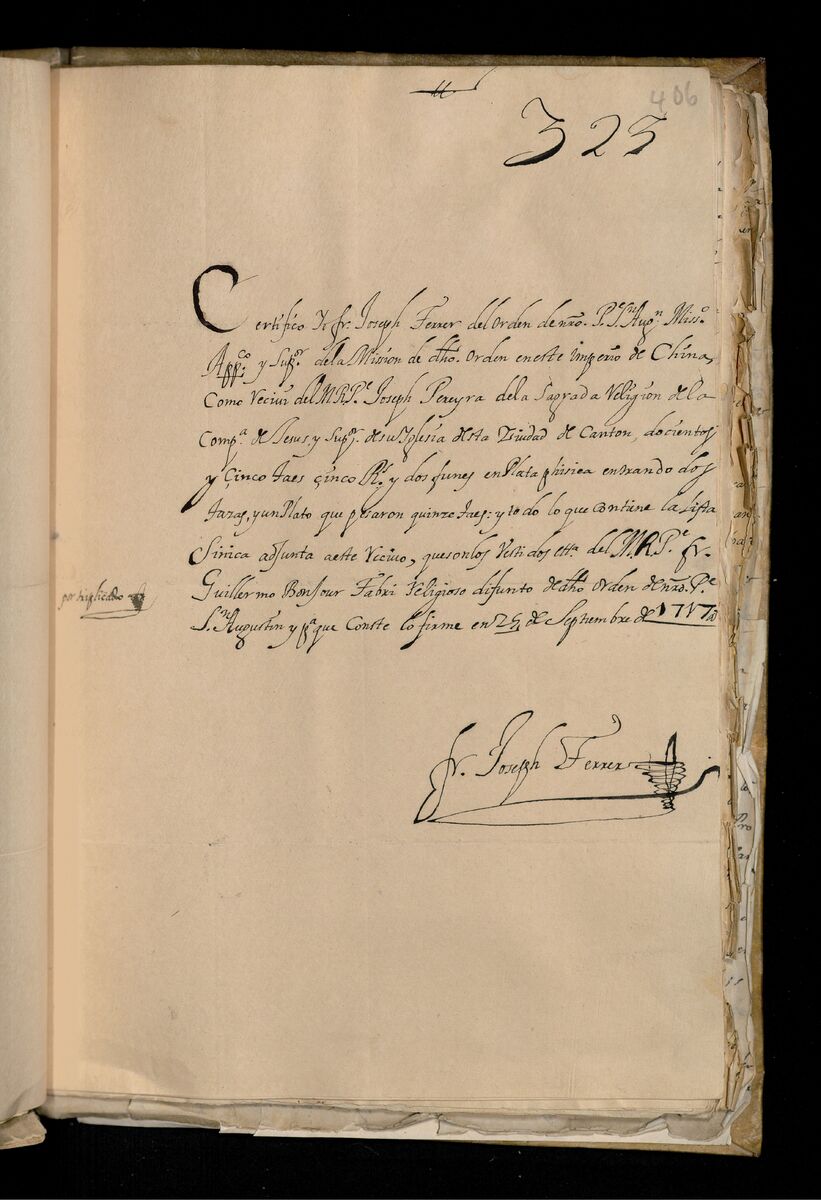 406
323
Certifico Yo fr. Joseph Ferrer del orden de nro. P.e S.n Aug.n Miss.o
App.co y Sup.or dela Mission de dho. orden en este imperio de China,
Como Reciui del M.R.P.e Joseph Pereyra dela Sagrada Religion de la
Comp.a de Jesus, y Sup.or de su Iglesia desta Ziudad de Canton, docientos
y Çinco taes çinco R.s y dos funes en Plata phisica entrando dos
tazas, y un Plato que pesaron quinze taes: y todo lo que contiene la Lista
Sinica adjunta a este Reciuo, que son los Vestidos etta. del M.R.P.e fr.
Guillermo Bonjour Fabri Religioso difunto de dho orden de nro. P.e
S.n Augustin y p.a que Conste lo firme en 24 de Septiembre de 1717 a
por triplicado
fr. Joseph Ferrer